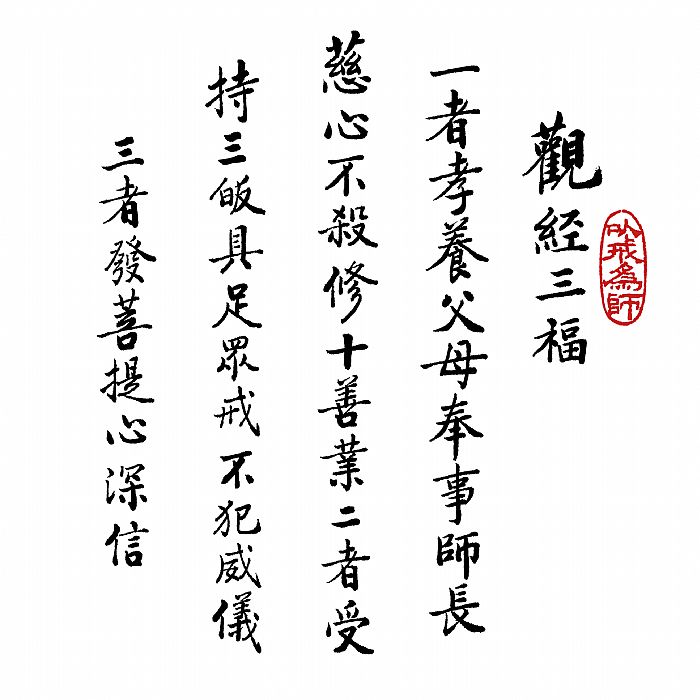 以戒為師
觀經三福
一者孝養父母奉事師長
慈心不殺修十善業二者受
持三皈具足眾戒不犯威儀
三者發菩提心深信